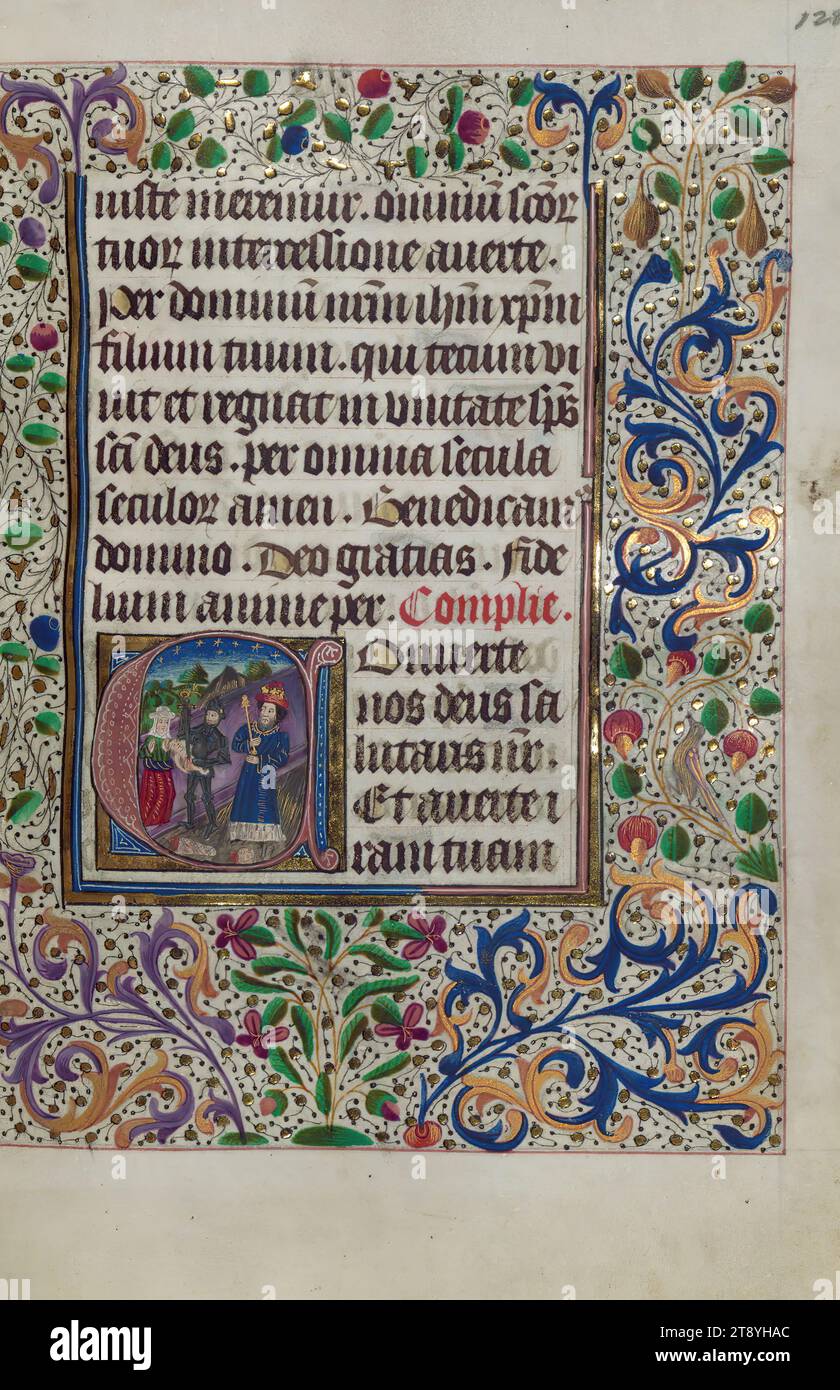 128
iuste meremur. omniū scōꝝ
tuoꝝ intercessione auerte.
Per dominū nr̄m ihm̄ xp̄m
filium tuum. qui tecum vi
uit et regnat in vnitate sp̄s
sc̄i deus. per omnia secula
seculoꝝ amen. Benedicamꝰ
domino. Deo gratias. Fide
lium anime per. Complie.
Conuerte
nos deus sa
lutaris nr̄.
Et auerte i
ram tuam
a
alamy
Image ID: 2T8YHAC
www.alamy.com